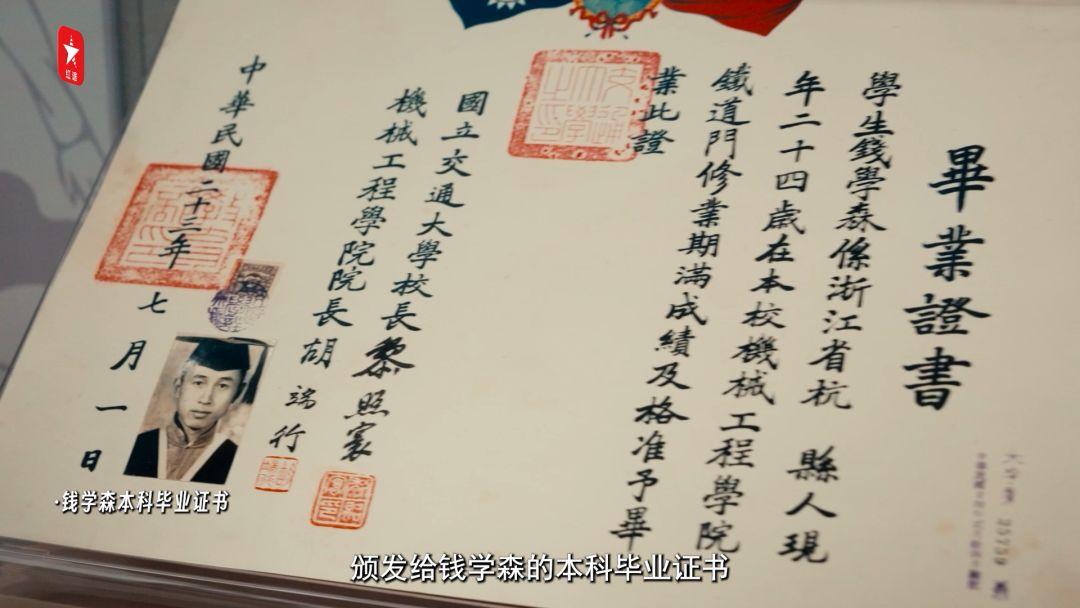 畢業證書
學生錢學森係浙江省杭縣人現
年二十四歲在本校機械工程學院
鐵道門修業期滿成績及格准予畢
業此證
國立交通大學校長黎照寰
機械工程學院院長胡端行
中華民國二十三年七月一日
红途
·钱学森本科毕业证书
颁发给钱学森的本科毕业证书